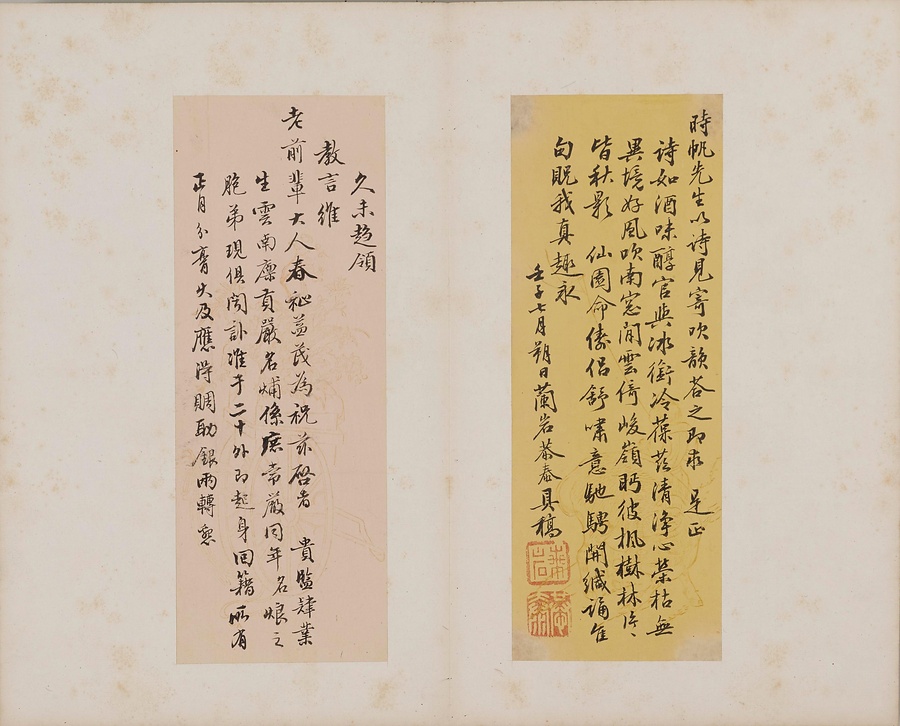 時帆先生以詩見寄次韻荅之即求 是正
詩如酒味醇官與冰銜冷葆茲清淨心榮枯無
異境好風吹南窓閒雲倚峻嶺眄彼楓樹林片〻
皆秋影 仙園命儔侶舒嘯意馳騁開緘誦佳
句貺我真趣永
壬子七月朔日蘭岩恭泰具稿
蘭岩
恭泰
久未趨領
教言維
老前輩大人春祉益茂為祝茲啓者 貴監肄業
生雲南廩貢嚴名煏係庶常嚴同年名烺之
胞弟現俱聞訃准于二十外即起身回籍所有
正月分膏火及應得賙助銀兩轉懇